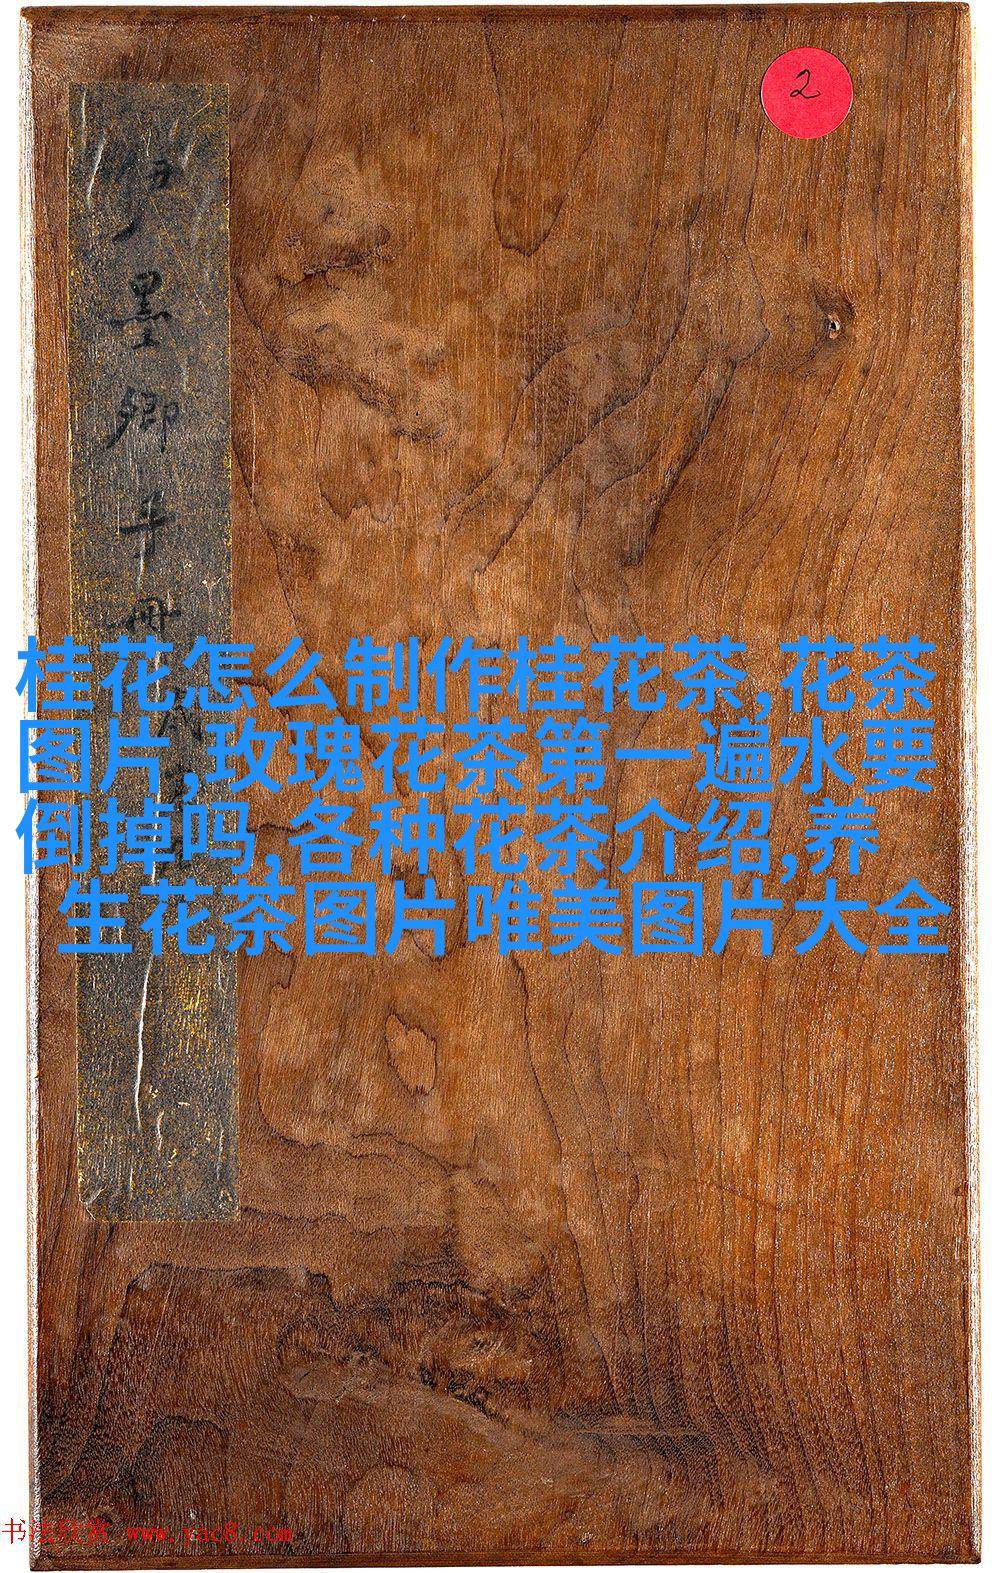 2
墨卿手冊
桂花怎么制作桂花茶,花茶
图片,玫瑰花茶第一遍水要
倒掉吗,各种花茶介绍,养
生花茶图片唯美图片大全
书法欣赏 www.yac8.com